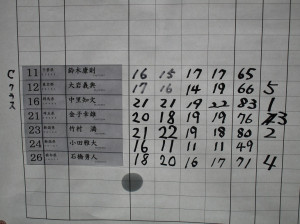 Cクラス
11 鈴木康則 16 15 17 17 65
12 大岩義典 17 16 14 19 66 5
16 中里知文 21 21 19 22 83 1
21 金子幸雄 20 18 19 19 76 3
23 竹村 満 21 22 19 18 80 2
24 小田雅大 16 11 11 11 49
26 石橋勇人 18 20 16 17 71 4